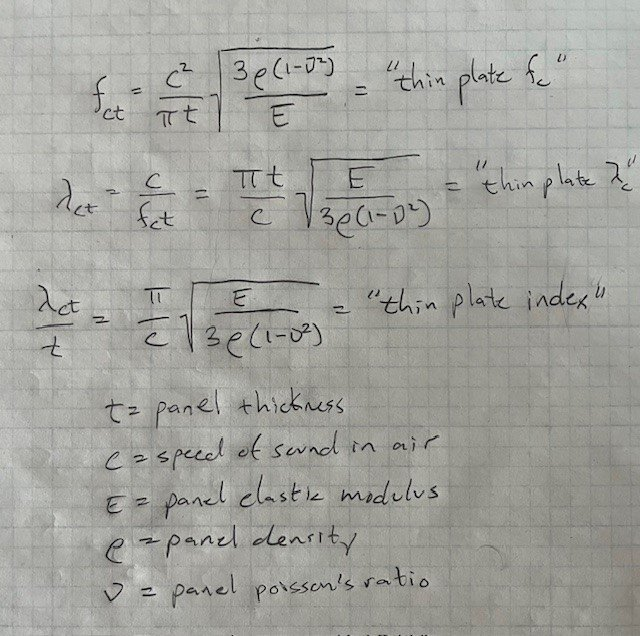 f_ct = c²/(πt) √(3ρ(1-ν²)/E) = "thin plate f_c"
λ_ct = c/f_ct = πt/c √(E/(3ρ(1-ν²))) = "thin plate λ_c"
λ_ct/t = π/c √(E/(3ρ(1-ν²))) = "thin plate index"
t = panel thickness
c = speed of sound in air
E = panel elastic modulus
ρ = panel density
ν = panel poisson's ratio